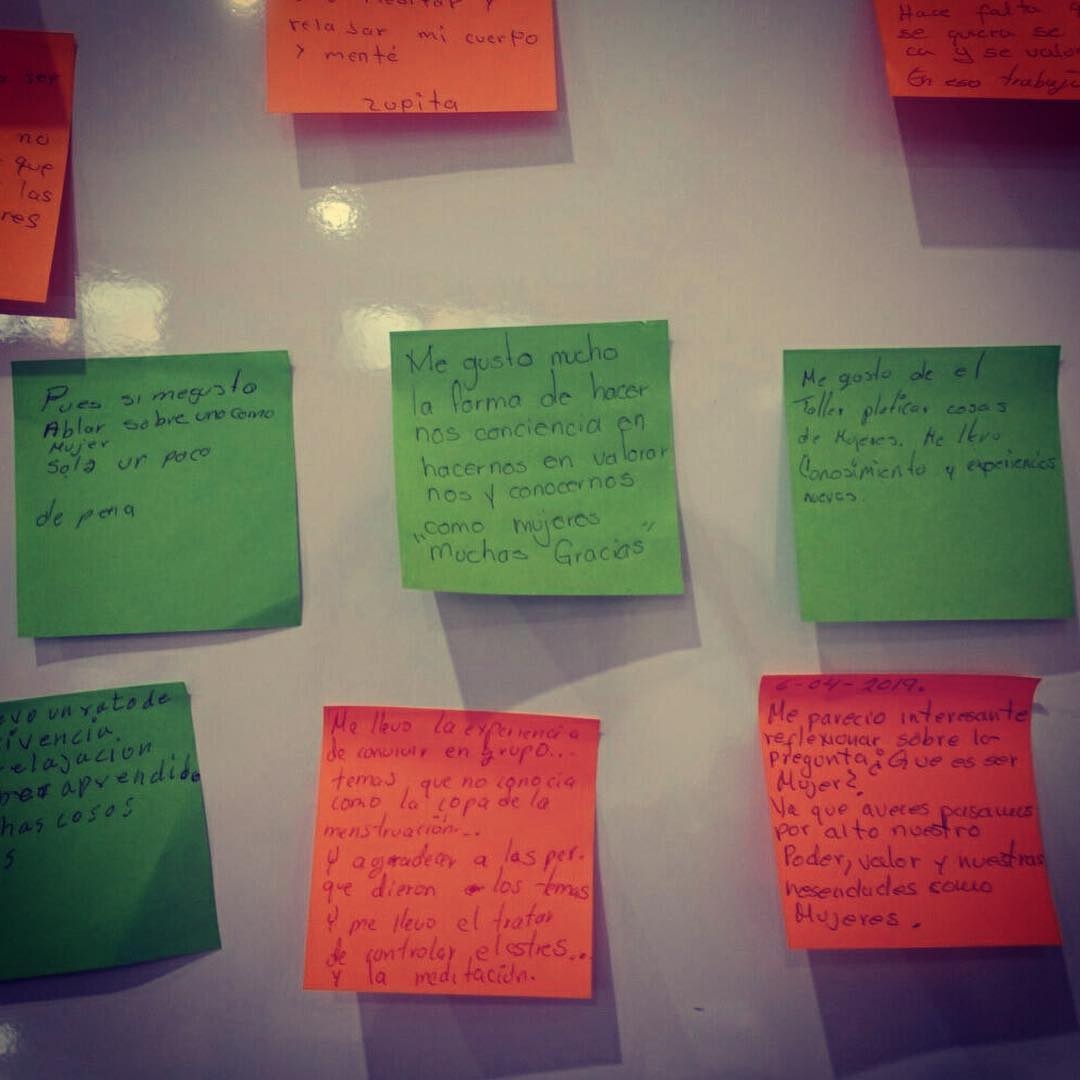 relajar mi cuerpo
y menté
zupita
Hace falta
se quiera se
ca y se valo
En eso trabaj
ser
no
que
las
res
Pues si megusto
Ablar sobre uno como
Mujer
Sola un poco
de pena
Me gusto mucho
la forma de hacer
nos conciencia en
hacernos en valorar
nos y conocernos
"como mujeres
Muchas Gracias"
Me gusto de el
Taller platicar cosas
de Mujeres. Me llevo
Conosimiento y experiencias
nuevas.
evo un rato de
ivencia.
elajacion
aprendido
has cosas
s
Me llevo la experiencia
de convivir en grupo...
temas que no conocia
como la copa de la
menstruación...
Y agradecer a las per.
que dieron los temas
Y me llevo el tratar
de controlar el estres...
y la meditación.
6-04-2019.
Me parecio interesante
reflexionar sobre la
pregunta ¿Que es ser
Mujer?
Ya que aveces pasamos
por alto nuestro
Poder, valor y nuestras
nesendades como
Mujeres.